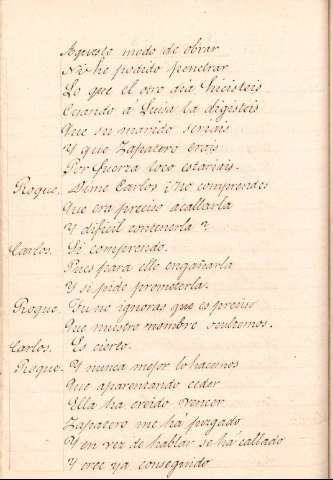 Aqueste modo de obrar
No he podido penetrar
Lo que el otro dia hicisteis
Cuando á Luisa la digisteis
Que su marido seriais
Y que Zapatero erais
Por fuerza loco estariais.
Roque. Dime Carlos ¿No comprendes
Que era preciso acallarla
Y dificil contenerla?
Carlos. Si comprendo.
Pues para ello engañarla
Y si pide prometerla.
Roque. Tu no ignoras que es preciso
Que nuestro nombre ocultemos.
Carlos. Es cierto.
Roque. Y nunca mejor lo hacemos
Que aparentando ceder
Ella ha creido vencer
Zapatero me há juzgado
Y en vez de hablar se há callado
Y cree ya conseguido